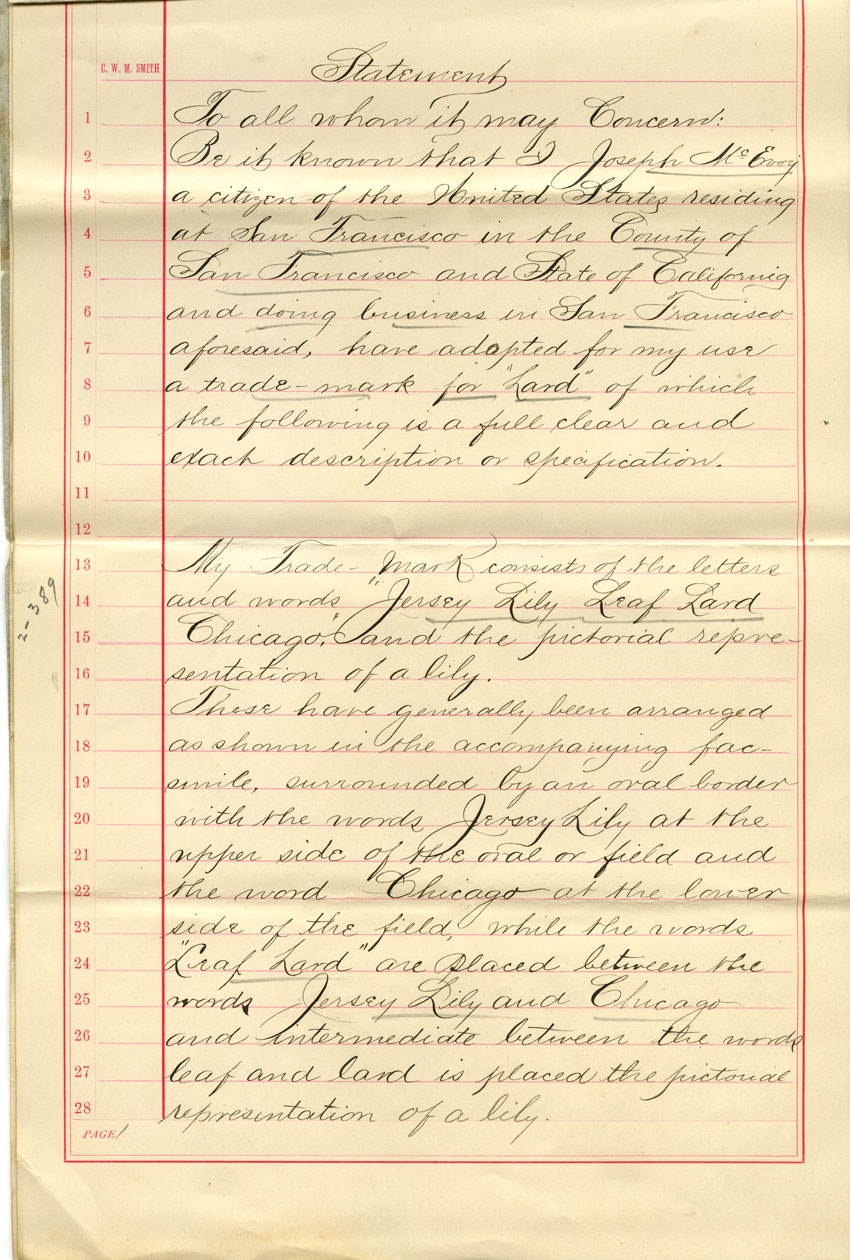 C. W. M. SMITH
Statement
1 To all whom it may Concern:
2 Be it known that I Joseph McEvoy
3 a citizen of the United States residing
4 at San Francisco in the County of
5 San Francisco and State of California
6 and doing business in San Francisco
7 aforesaid, have adopted for my use
8 a trade-mark for "Lard" of which
9 the following is a full clear and
10 exact description or specification.
11
12
13 My Trade-Mark consists of the letters
14 and words "Jersey Lily Leaf Lard
15 Chicago," and the pictorial repre-
16 sentation of a lily.
17 These have generally been arranged
18 as shown in the accompanying fac-
19 simile, surrounded by an oval border
20 with the words Jersey Lily at the
21 upper side of the oval or field and
22 the word Chicago at the lower
23 side of the field, while the words
24 "Leaf Lard" are placed between the
25 words Jersey Lily and Chicago
26 and intermediate between the words
27 leaf and lard is placed the pictorial
28 representation of a lily.
PAGE 1
2-389